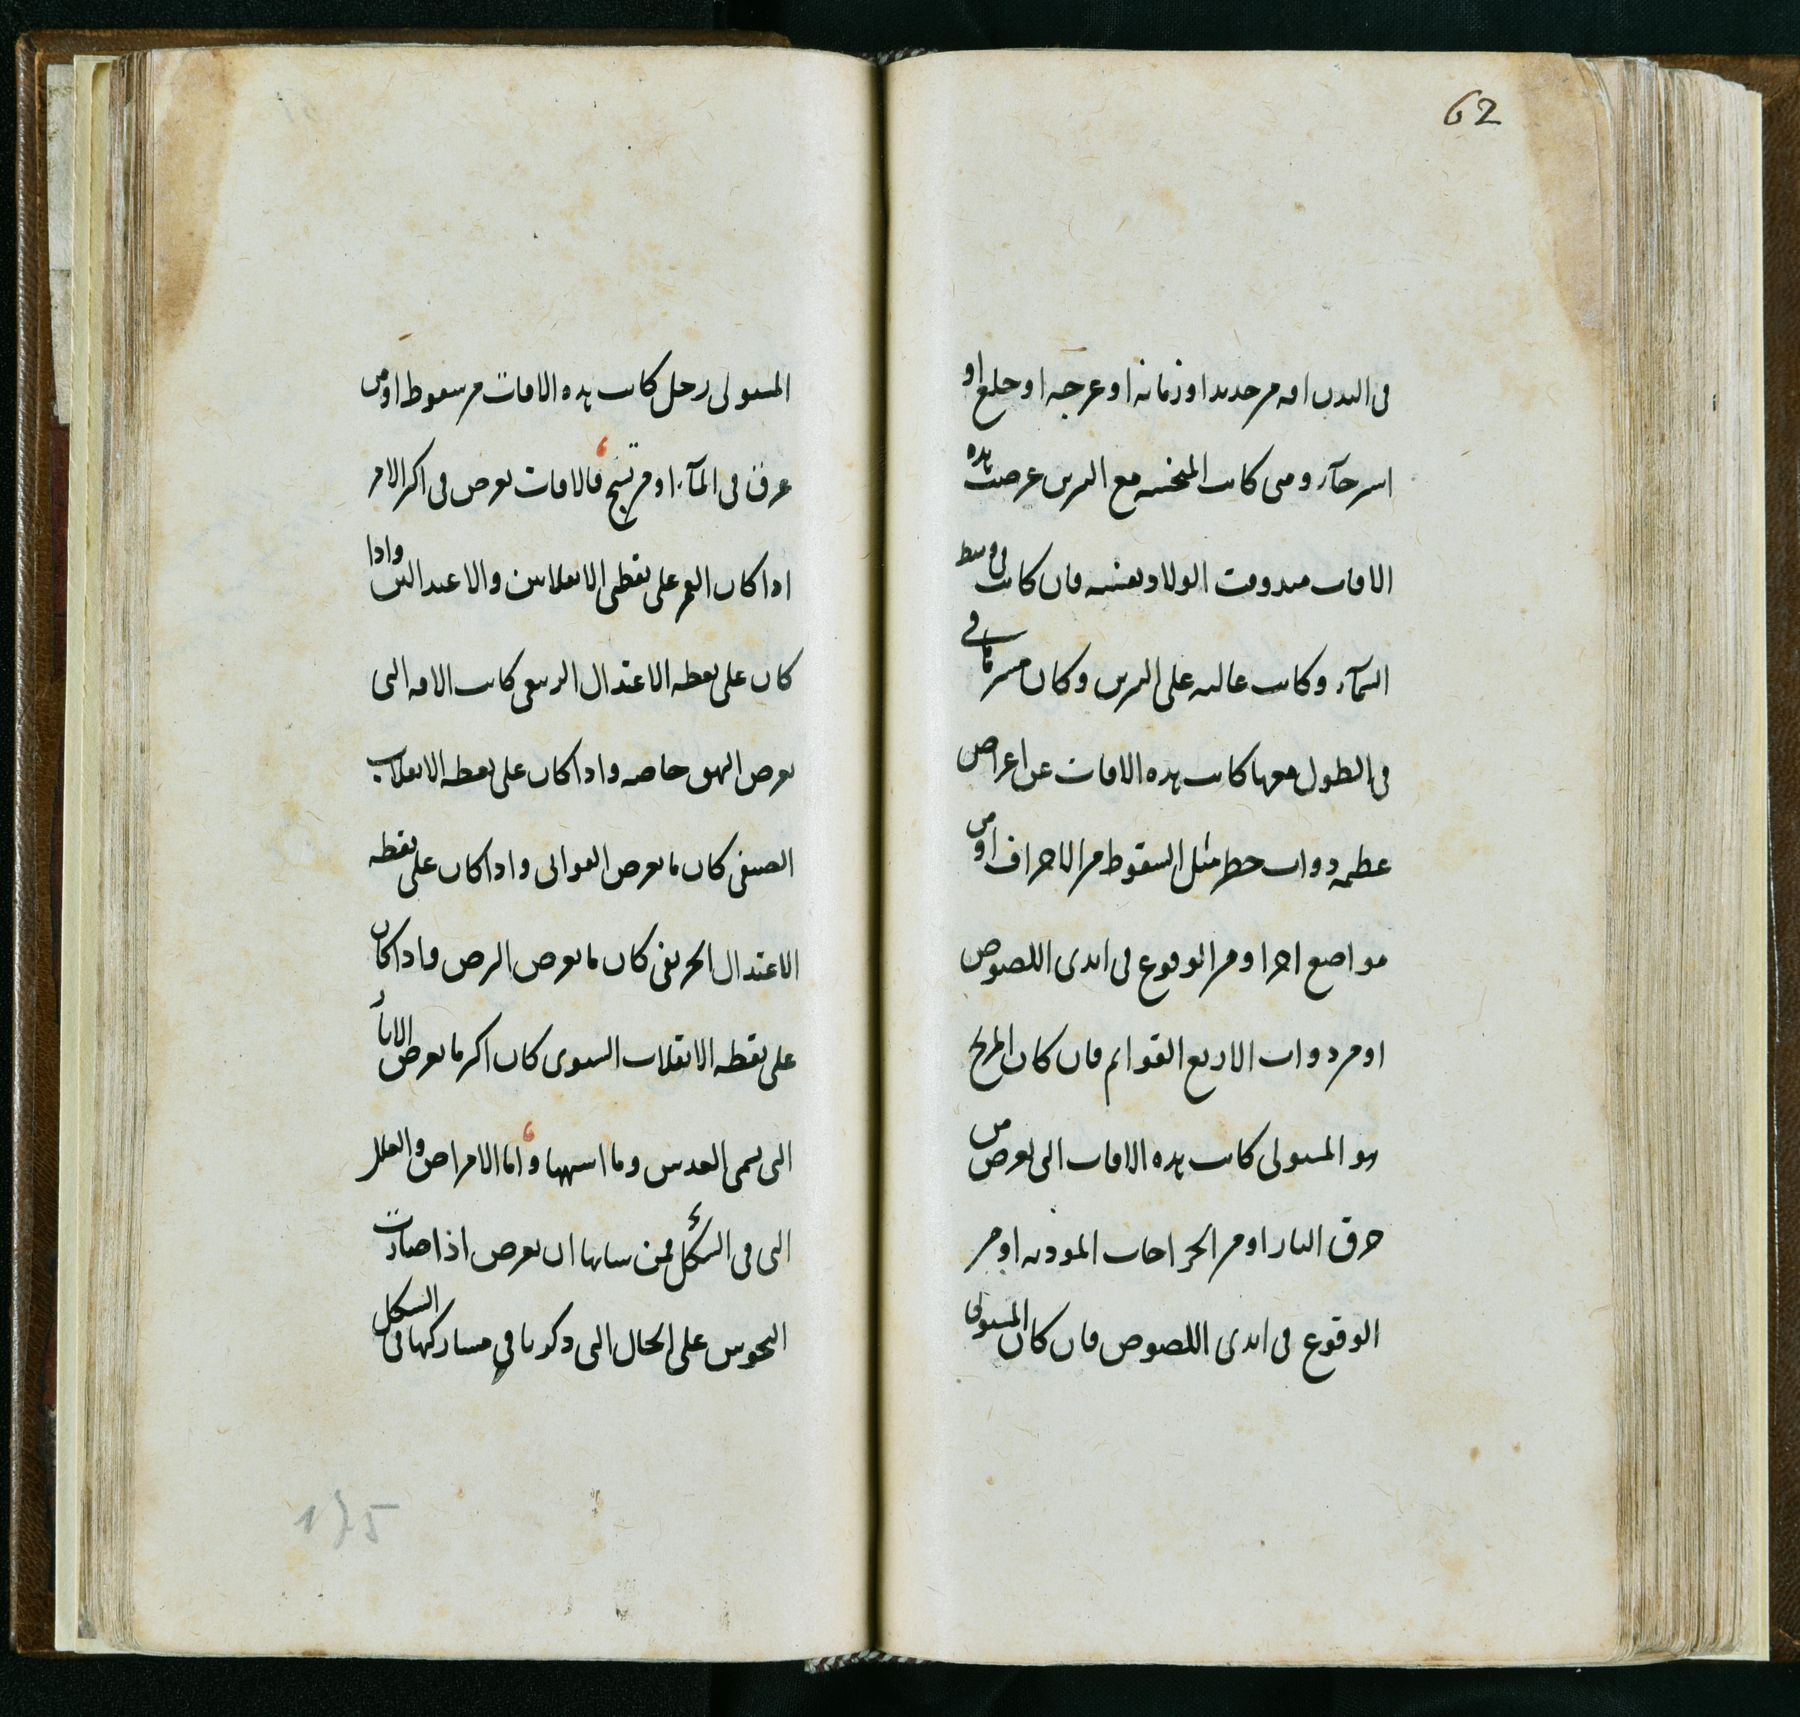 62
في البدن افه من حديد او زمانه او عرجه او خلع او
استرخاء ومتى كانت المنحسه مع النيرين عرضت هذه
الافات منذ وقت الولاد بعينه فان كانت في وسط
السماء وكانت عاليه على النيرين وكان مشرقا في
في الطول معها كانت هذه الافات عن اعراض
عظيمه ذوات خطر مثل السقوط من الاجراف او من
مواضع اخر او من الوقوع في ايدي اللصوص
او من ذوات الاربع القوائم فان كان المريخ
هو المستولي كانت هذه الافات التي تعرض من
حرق النار او من الجراحات الموذيه او من
الوقوع في ايدي اللصوص فان كان المستولي
المستولي زحل كانت هذه الافات من سقوط او من
غرق في الماء او من تشنج فالافات تعرض في اكثر الامر
اذا كان القمر على نقطتي الانقلابين والاعتدالين واذا
كان على نقطه الاعتدال الربيعي كانت الافه التي
تعرض البهق خاصه واذا كان على نقطه الانقلاب
الصيفي كان ما يعرض القوابي واذا كان على نقطه
الاعتدال الخريفي كان ما يعرض البرص واذا كان
على نقطه الانقلاب الشتوي كان اكثر ما يعرض
التي تسمى العدس وما اشبهها واما الامراض والعلل
التي في الشكل فمن شانها ان تعرض اذا صارت
النحوس على الحال التي ذكرنا في مشاركتها في الشكل
175